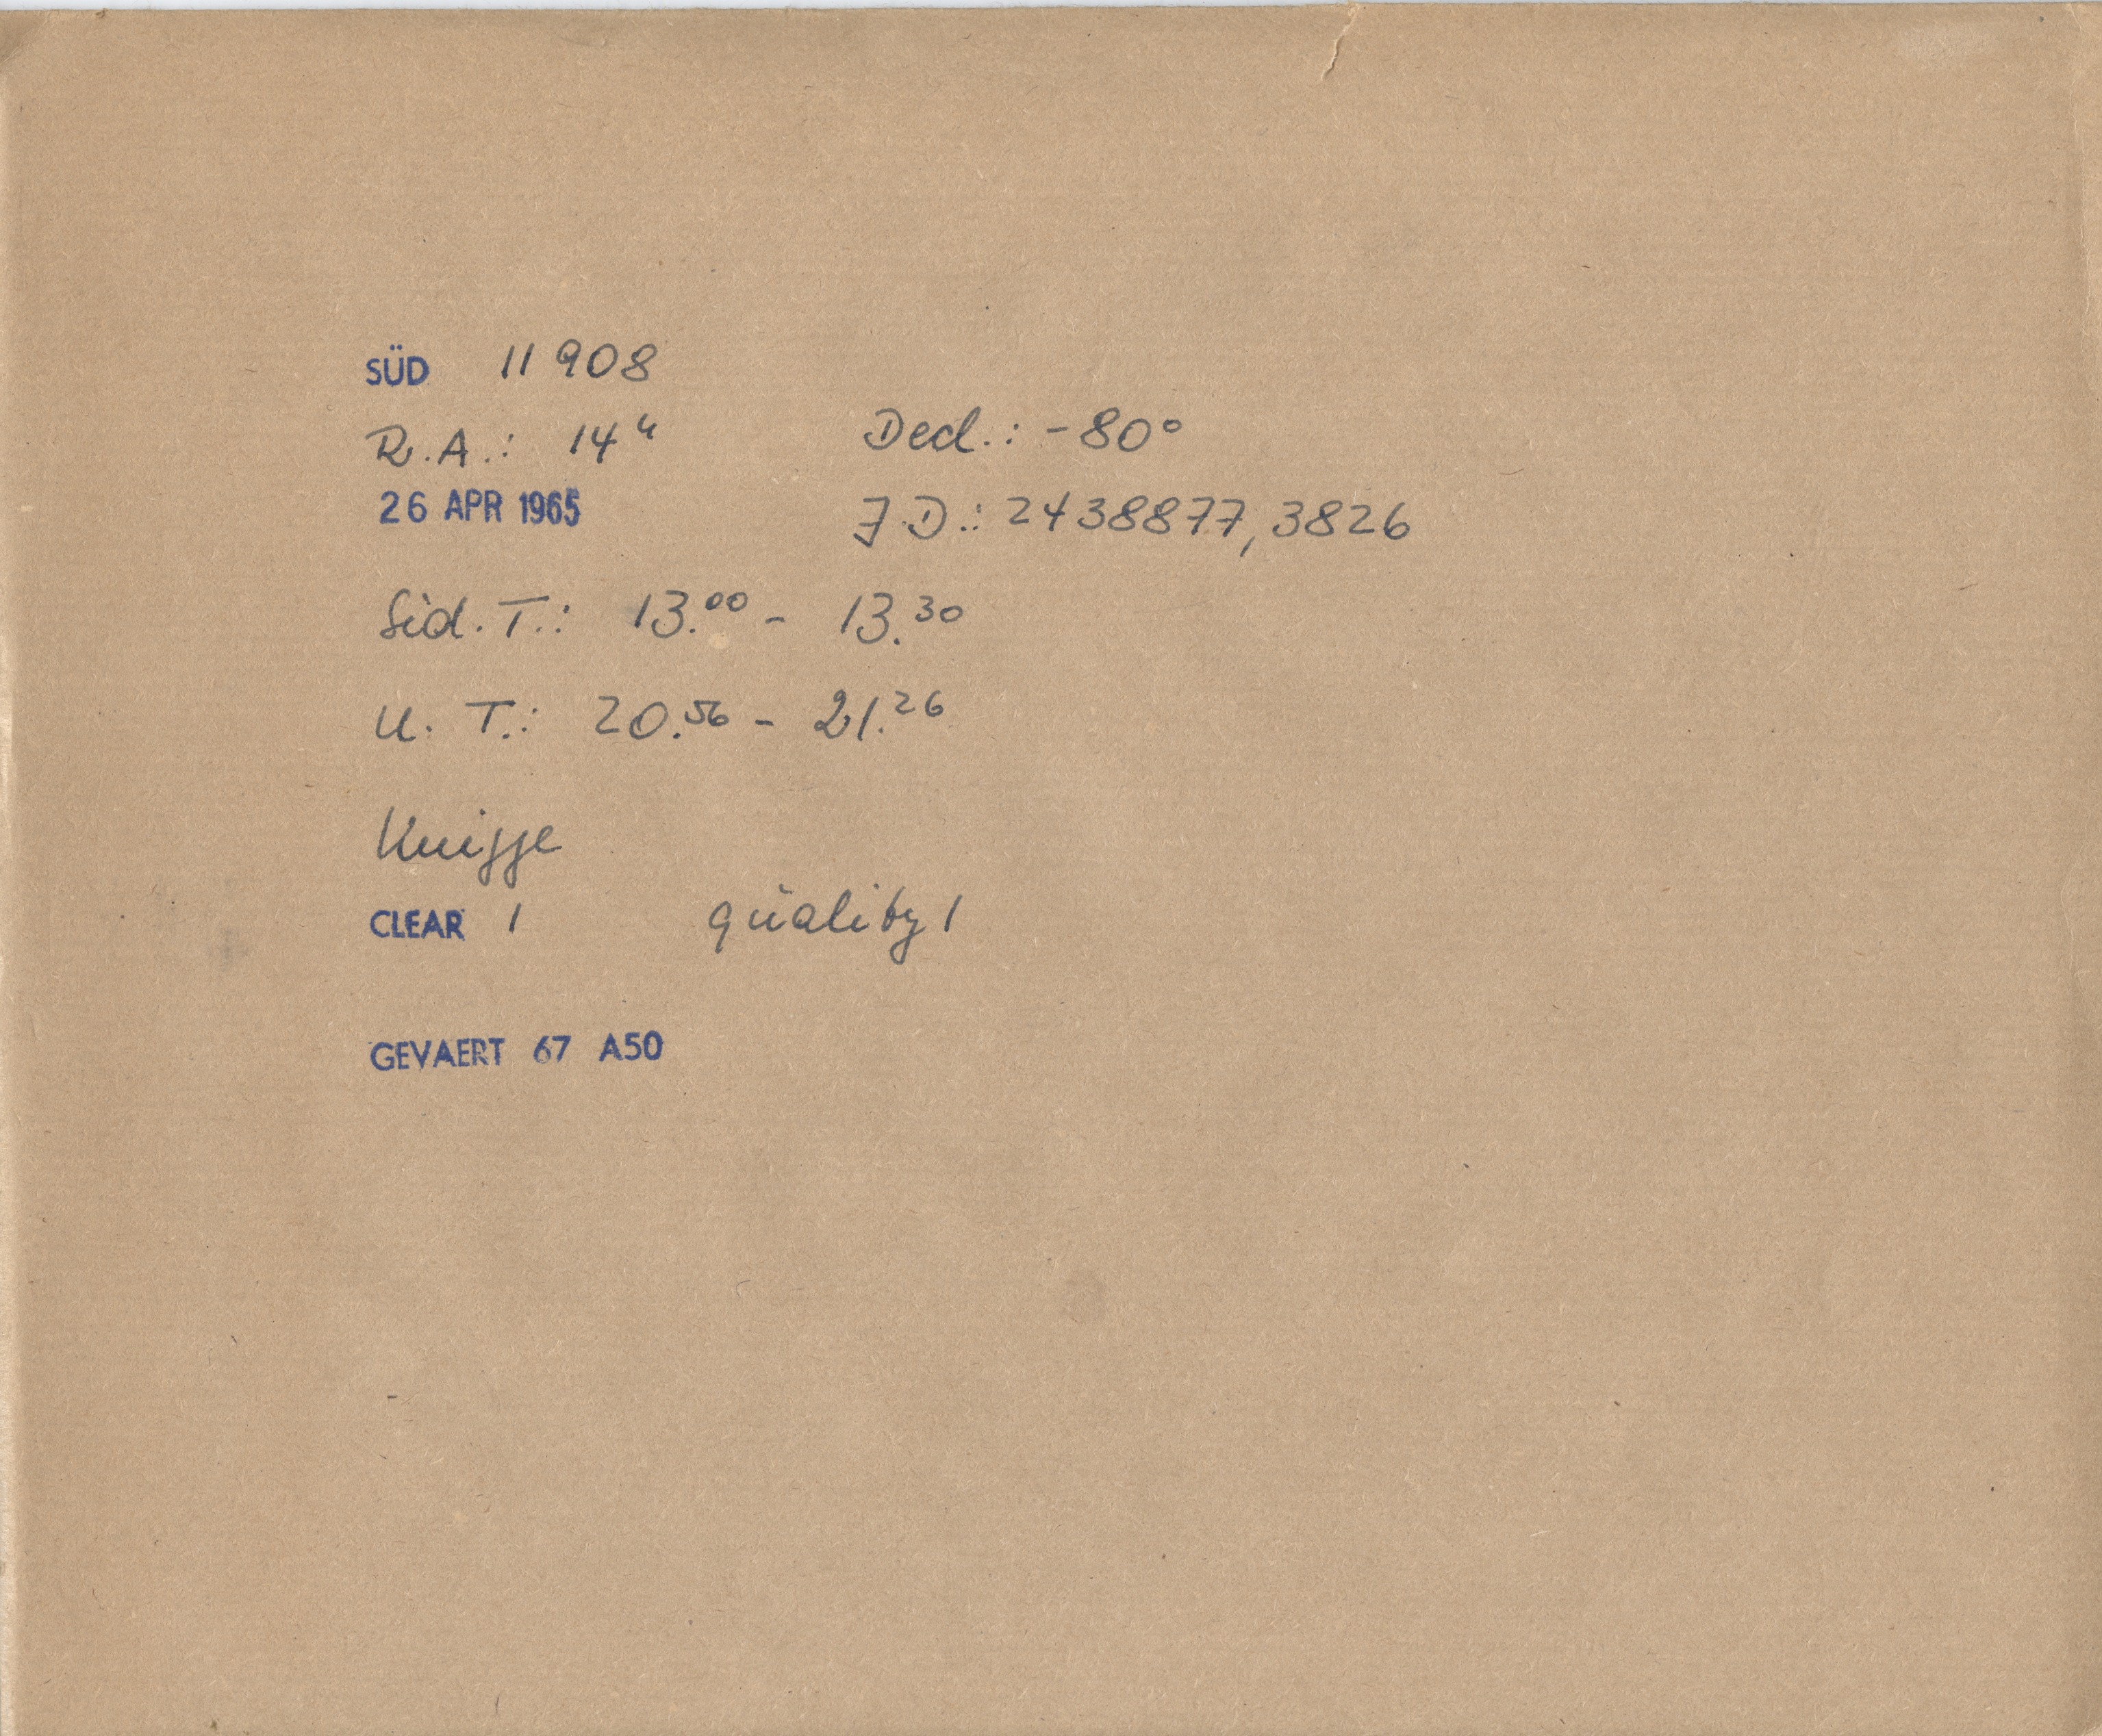 SÜD 11908
R.A.: 14h Decl.: -80°
26 APR 1965 J.D.: 2438877,3826
Sid. T.: 13.00 - 13.30
U. T.: 20.56 - 21.26
Knigge
CLEAR 1 quality 1
GEVAERT 67 A50